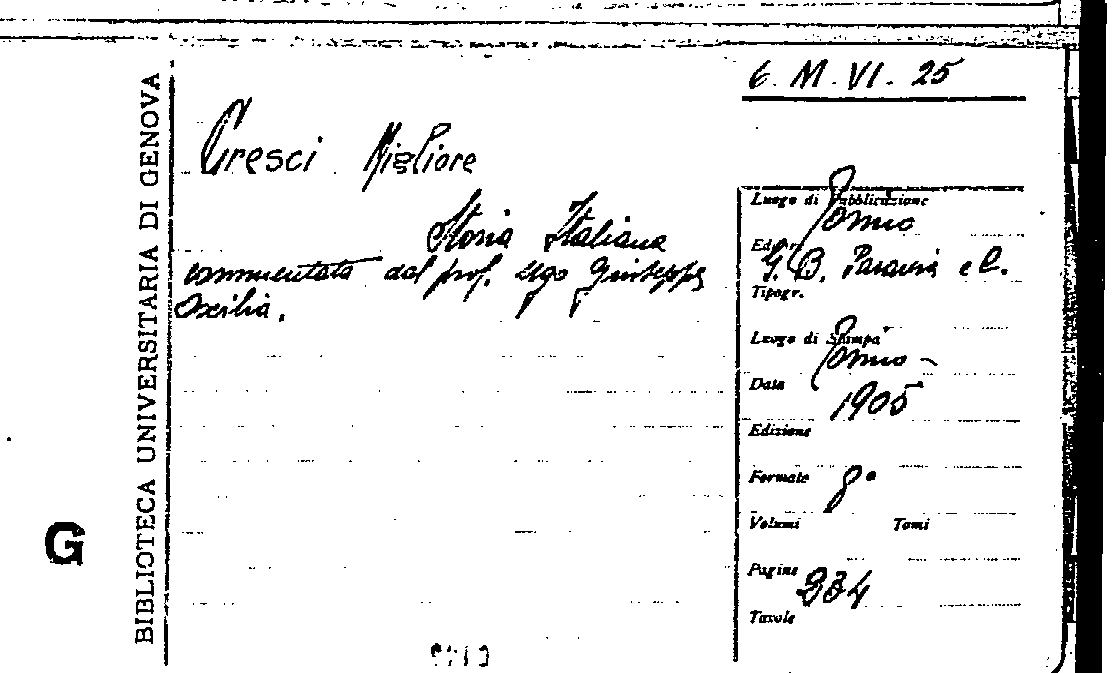 BIBLIOTECA UNIVERSITARIA DI GENOVA
G
6. M. VI. 25
Cresci Migliore
Storia Italiana
commentata dal prof. Ugo Giuseppe
Oxilia.
Luogo di Pubblicazione
Torino
Editr.
G. B. Paravia e C.
Tipogr.
Luogo di Stampa
Torino
Data
1905
Edizione
Formato 8°
Volumi Tomi
Pagine 334
Tavole